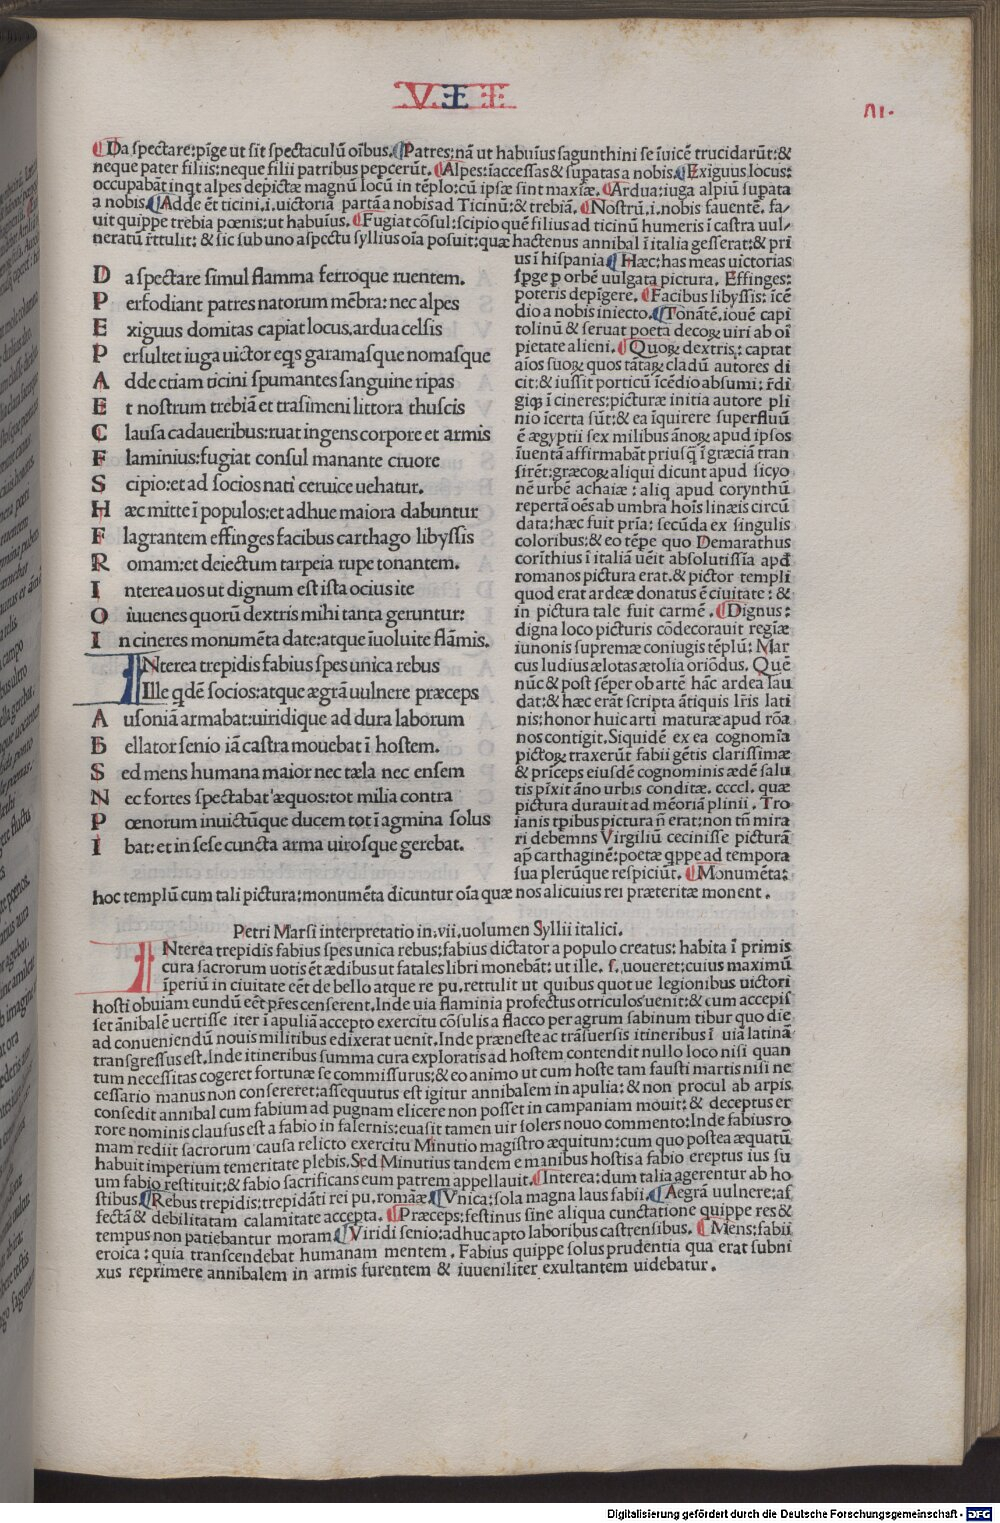 V I I
VI.
Da spectare: pīge ut sīt spectaculū oībus. Patres: nā ut habuīus sagunthini se īuicē trucidarūt: &
neque pater filiis: neque filii patribus pepcerūt. Alpes: īaccessas & supatas a nobis. Exiguus locus:
occupabāt inqt alpes depictæ magnū locū in tēplo: cū ipsæ sint maxīæ. Ardua: iuga alpiū supata
a nobis. Adde ēt ticini. i. uictoriā partā a nobis ad Ticinū: & trebiā. Nostrū. i. nobis fauentē. fa/
uit quippe trebia pœnis: ut habuīus. Fugiat cōsul: scipio quē filius ad ticinū humeris ī castra uul/
neratū r̄ttulit: & sic sub uno aspectu syllius oīa posuit: quæ hactenus annibal ī italia gesserat: & pri
us ī hispania Hæc: has meas uictorias
spge p orbē uulgata pictura. Effinges:
poteris depīgere. Facibus libyssis: īcē
dio a nobis iniecto. Tonātē. iouē capi
tolinū & seruat poeta decorꝝ uiri ab oī
pietate alieni. Quorꝝ dextris: captat
aīos suorꝝ quos tātarꝝ cladū autores di
cit: & iussit porticū īcēdio absumi: r̄di
giqꝫ ī cineres: picturæ initia autore pli
nio īcerta sūt: & ea īquirere superfluū
ē ægyptii sex milibus ānorꝝ apud ipsos
īuentā affirmabāt priusqꝫ ī græciā tran
sirēt: græcorꝝ aliqui dicunt apud sicyo
nē urbē achaiæ: aliq apud corynthū
repertā oēs ab umbra hoīs linæis circū
data: hæc fuit prīa: secūda ex singulis
coloribus: & eo tēpe quo Demarathus
corīthius ī italiā ueīt absolutissīa apd
romanos pictura erat. & pictor templi
quod erat ardeæ donatus ē ciuitate: &
in pictura tale fuit carmē. Dignus:
digna loco picturis cōdecorauit regiæ
iunonis supremæ coniugis tēplū: Mar
cus ludius ælotas ætolia oriōdus. Quē
nūc & post sēper ob artē hāc ardea lau
dat: & hæc erāt scripta ātiquis lr̄is lati
nis: honor huic arti maturæ apud rōa
nos contigit. Siquidē ex ea cognomīa
pictorꝝ traxerūt fabii gētis clarissimæ
& prīceps eiusdē cognominis ædē salu
tis pīxit āno urbis conditæ. ccccl. quæ
pictura durauit ad mēoriā plinii. Tro
ianis tpibus pictura n̄ erat: non tn̄ mira
ri debemns Virgiliū cecinisse picturā
ap carthaginē: poetæ qppe ad tempora
sua plerūque respiciūt. Monumēta:
hoc templū cum tali pictura: monumēta dicuntur oīa quæ nos alicuius rei præteritæ monent.
D a spectare simul flamma ferroque ruentem.
P erfodiant patres natorum mēbra: nec alpes
E xiguus domitas capiat locus. ardua celsis
P ersultet iuga uictor eqs garamasque nomasque
A dde etiam ticini spumantes sanguine ripas
E t nostrum trebiā et trasimeni littora thuscis
C lausa cadaueribus: ruat ingens corpore et armis
F laminius: fugiat consul manante cruore
S cipio: et ad socios nati ceruice uehatur.
H æc mitte ī populos: et adhue maiora dabuntur
F lagrantem effinges facibus carthago libyssis
R omam: et deiectum tarpeia rupe tonantem.
I nterea uos ut dignum est ista ocius ite
O iuuenes quorū dextris mihi tanta geruntur:
I n cineres monumēta date: atque īuoluite flāmis.
INterea trepidis fabius spes unica rebus
Ille qdē socios: atque ægrā uulnere præceps
A usoniā armabat: uiridique ad dura laborum
B ellator senio iā castra mouebat ī hostem.
S ed mens humana maior nec tæla nec ensem
N ec fortes spectabat æquos: tot milia contra
P œnorum inuictūque ducem tot ī agmina solus
I bat: et in sese cuncta arma uirosque gerebat.
Petri Marsi interpretatio in. vii. uolumen Syllii italici.
INterea trepidis fabius spes unica rebus: fabius dictator a populo creatus: habita ī primis
cura sacrorum uotis ēt ædibus ut fatales libri monebāt: ut ille. s. uoueret: cuius maximū
īperiū in ciuitate eēt de bello atque re pu. rettulit ut quibus quot ue legionibus uictori
hosti obuiam eundū eēt pr̄es censerent. Inde uia flaminia profectus otriculos uenit: & cum accepis
set ānibalē uertisse iter ī apuliā accepto exercitu cōsulis a flacco per agrum sabinum tibur quo die
ad conueniendū nouis militibus edixerat uenit. Inde præneste ac trāsuersis itineribus ī uiā latinā
transgressus est. Inde itineribus summa cura exploratis ad hostem contendit nullo loco nisi quan
tum necessitas cogeret fortunæ se commissurus: & eo animo ut cum hoste tam fausti martis nisi ne
cessario manus non consereret: assequutus est igitur annibalem in apulia: & non procul ab arpis
consedit annibal cum fabium ad pugnam elicere non posset in campaniam mouit: & deceptus er
rore nominis clausus est a fabio in falernis: euasit tamen uir solers nouo commento: Inde fabius ro
mam rediit sacrorum causa relicto exercitu Minutio magistro æquitum: cum quo postea æquatū
habuit imperium temeritate plebis. Sed Minutius tandem e manibus hostis a fabio ereptus ius su
um fabio restituit: & fabio sacrificans eum patrem appellauit. Interea: dum talia agerentur ab ho
stibus. Rebus trepidis: trepidāti rei pu. romāæ. Vnica: sola magna laus fabii. Aegrā uulnere: af
fectā & debilitatam calamitate accepta. Præceps: festinus sine aliqua cunctatione quippe res &
tempus non patiebantur moram. Viridi senio: adhuc apto laboribus castrensibus. Mens: fabii
eroica: quia transcendebat humanam mentem. Fabius quippe solus prudentia qua erat subni
xus reprimere annibalem in armis furentem & iuueniliter exultantem uidebatur.
Digitalisierung gefördert durch die Deutsche Forschungsgemeinschaft - DFG